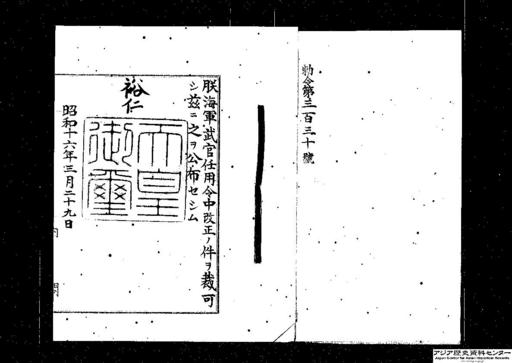 勅令第三百三十號
朕海軍武官任用令中改正ノ件ヲ裁可
シ茲ニ之ヲ公布セシム
裕仁
天皇
御璽
昭和十六年三月二十九日
内閣
アジア歴史資料センター
Japan Center for Asian Historical Records